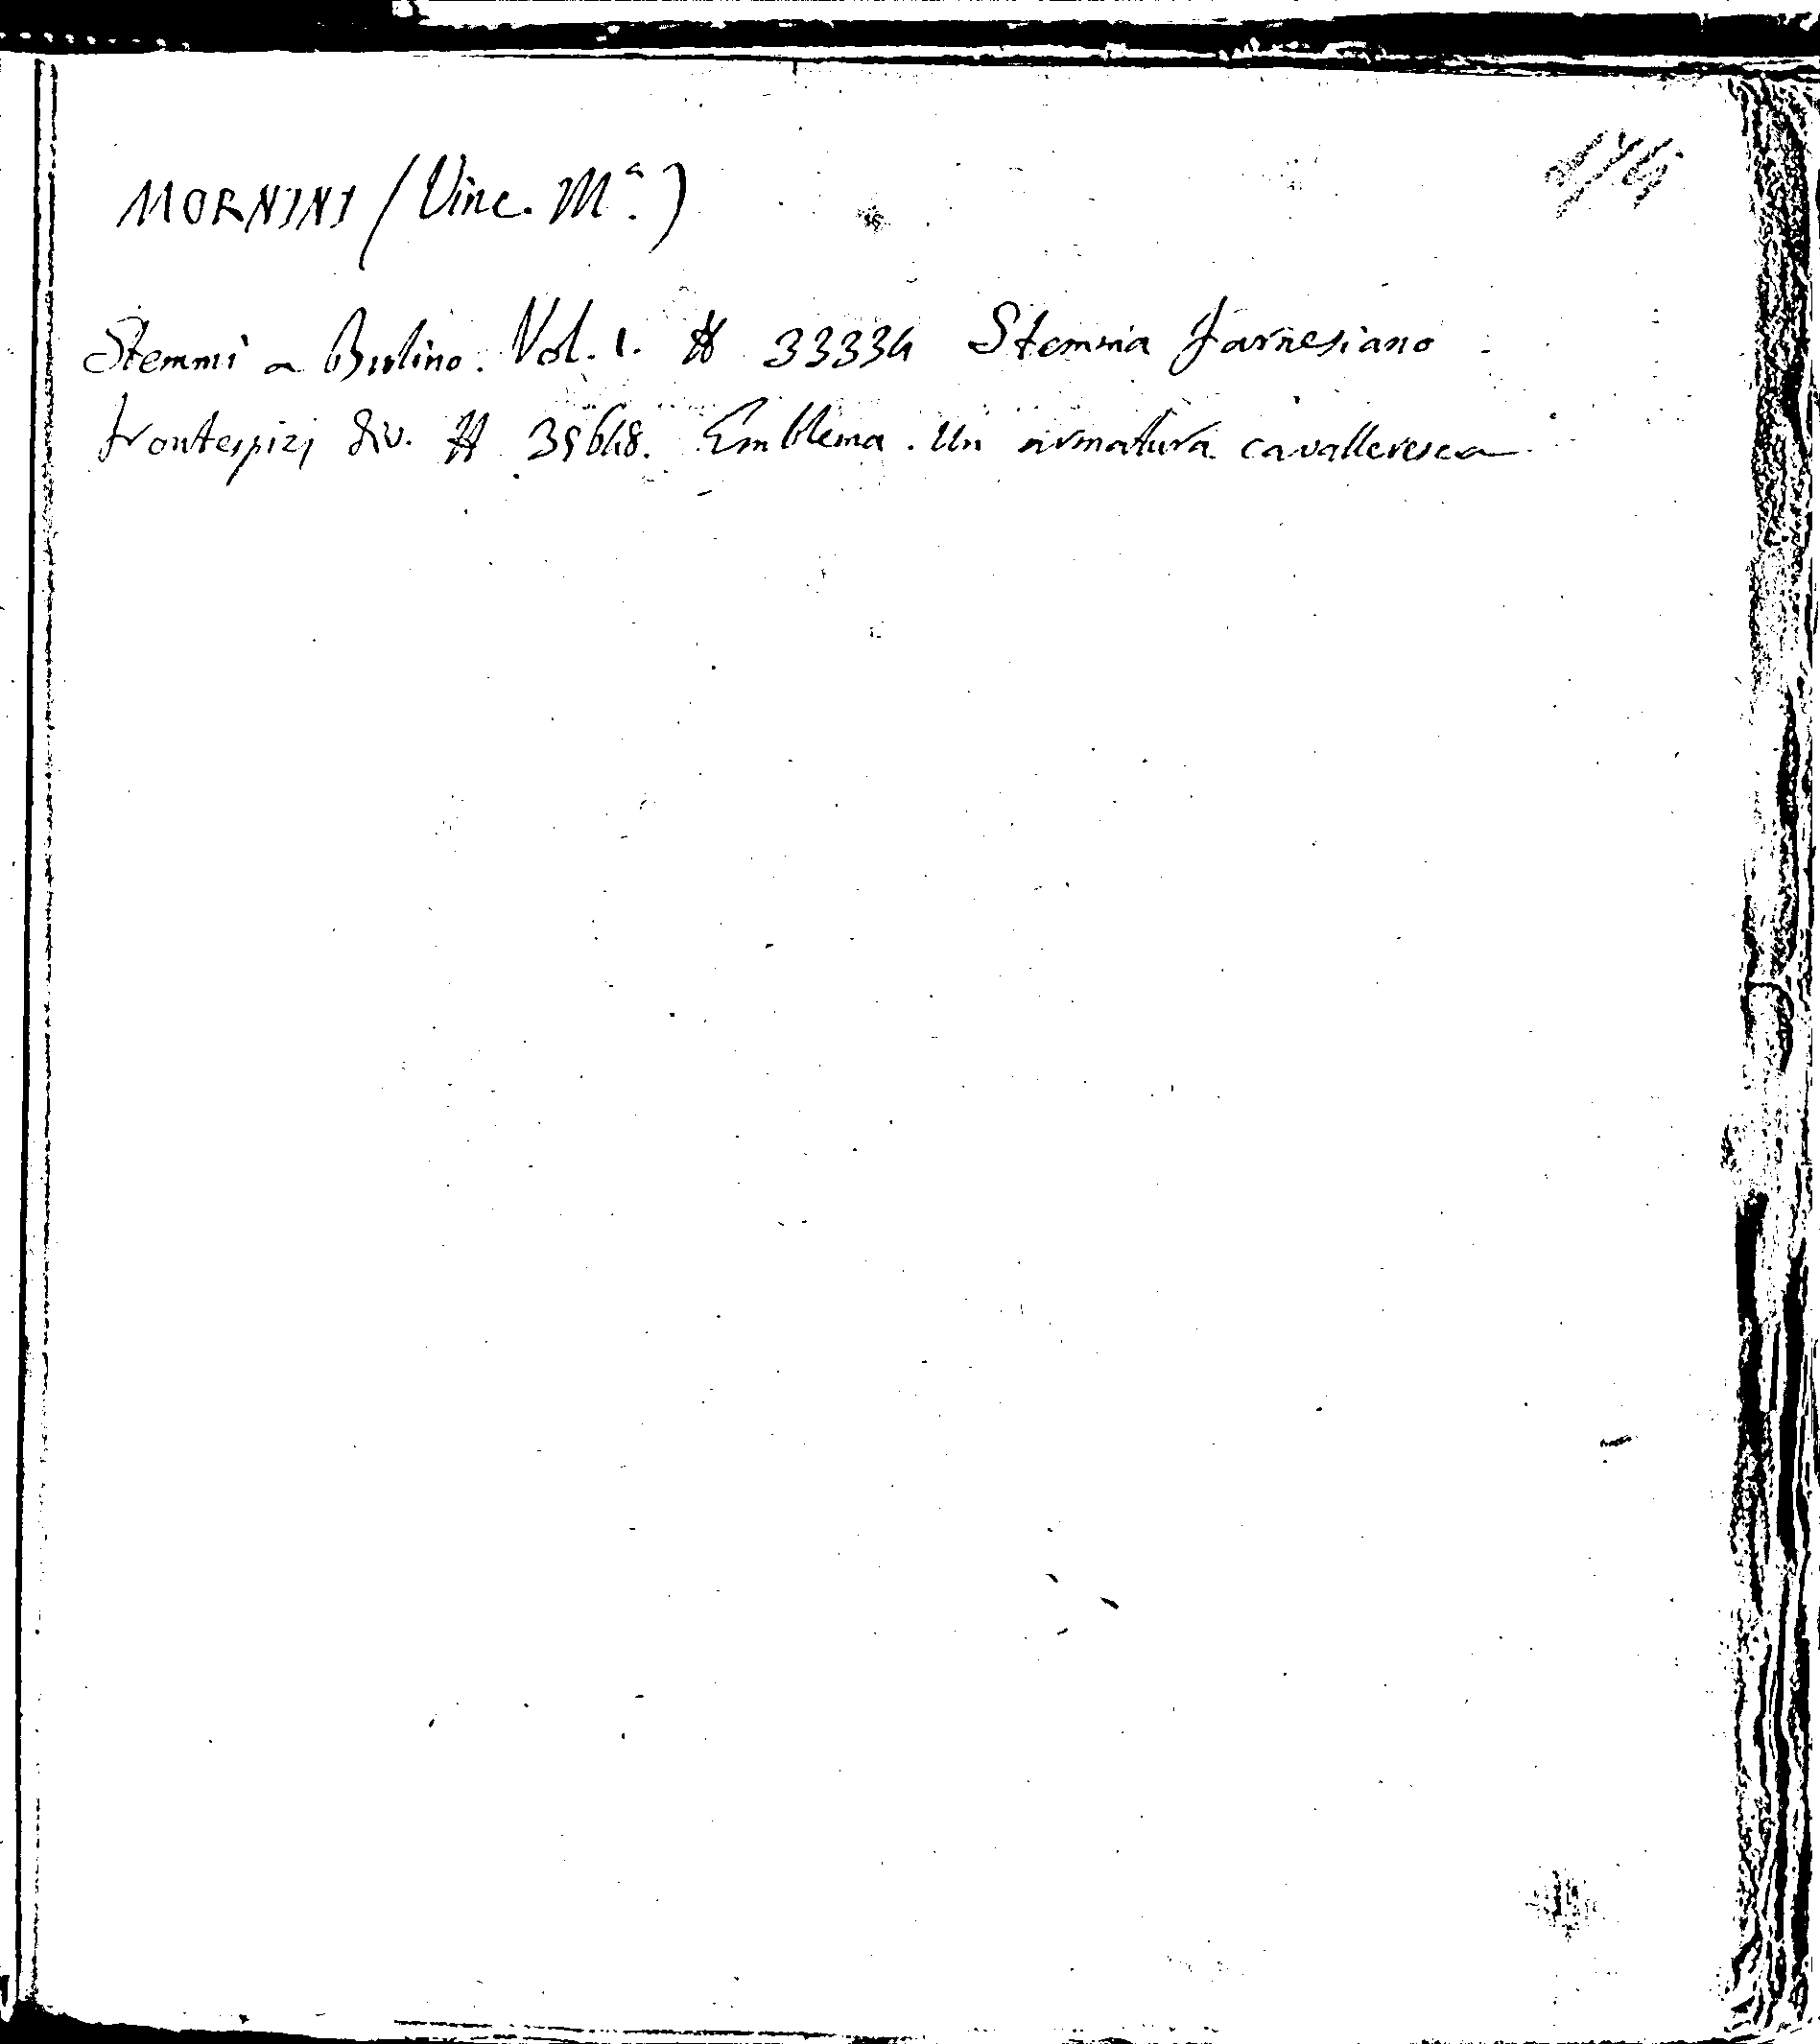 MORNINI (Vinc. Mª.)
Stemmi a Bulino. Vol. 1. # 33334 Stemma Farnesiano
frontespizj div. # 35648. Emblema. Un armatura cavalleresca